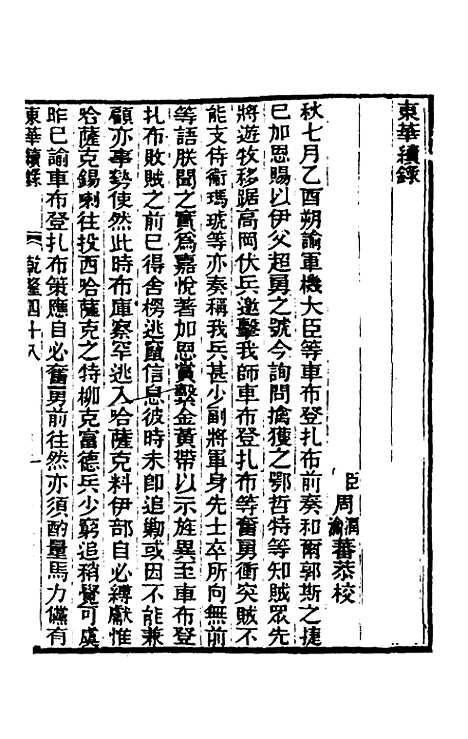 東華續錄
臣周潤蕃瀹蕃恭校
秋七月乙酉朔諭軍機大臣等車布登扎布前奏和爾郭斯之捷
已加恩賜以伊父超勇之號今詢問擒獲之鄂哲特等知賊眾先
將遊牧移踞高岡伏兵邀擊我師車布登扎布等奮勇衝突賊不
能支侍衞瑪琥等亦奏稱我兵甚少副將軍身先士卒所向無前
等語朕聞之實爲嘉悅著加恩賞繫金黃帶以示旌異至車布登
扎布敗賊之前已得舍楞逃竄信息彼時未即追勦或因不能兼
顧亦事勢使然此時布庫察罕逃入哈薩克料伊部自必縛獻惟
哈薩克錫喇往投西哈薩克之特柳克富德兵少窮追稍覺可虞
昨已諭車布登扎布策應自必奮勇前往然亦須酌量馬力儻有
東華續錄 乾隆四十八 一